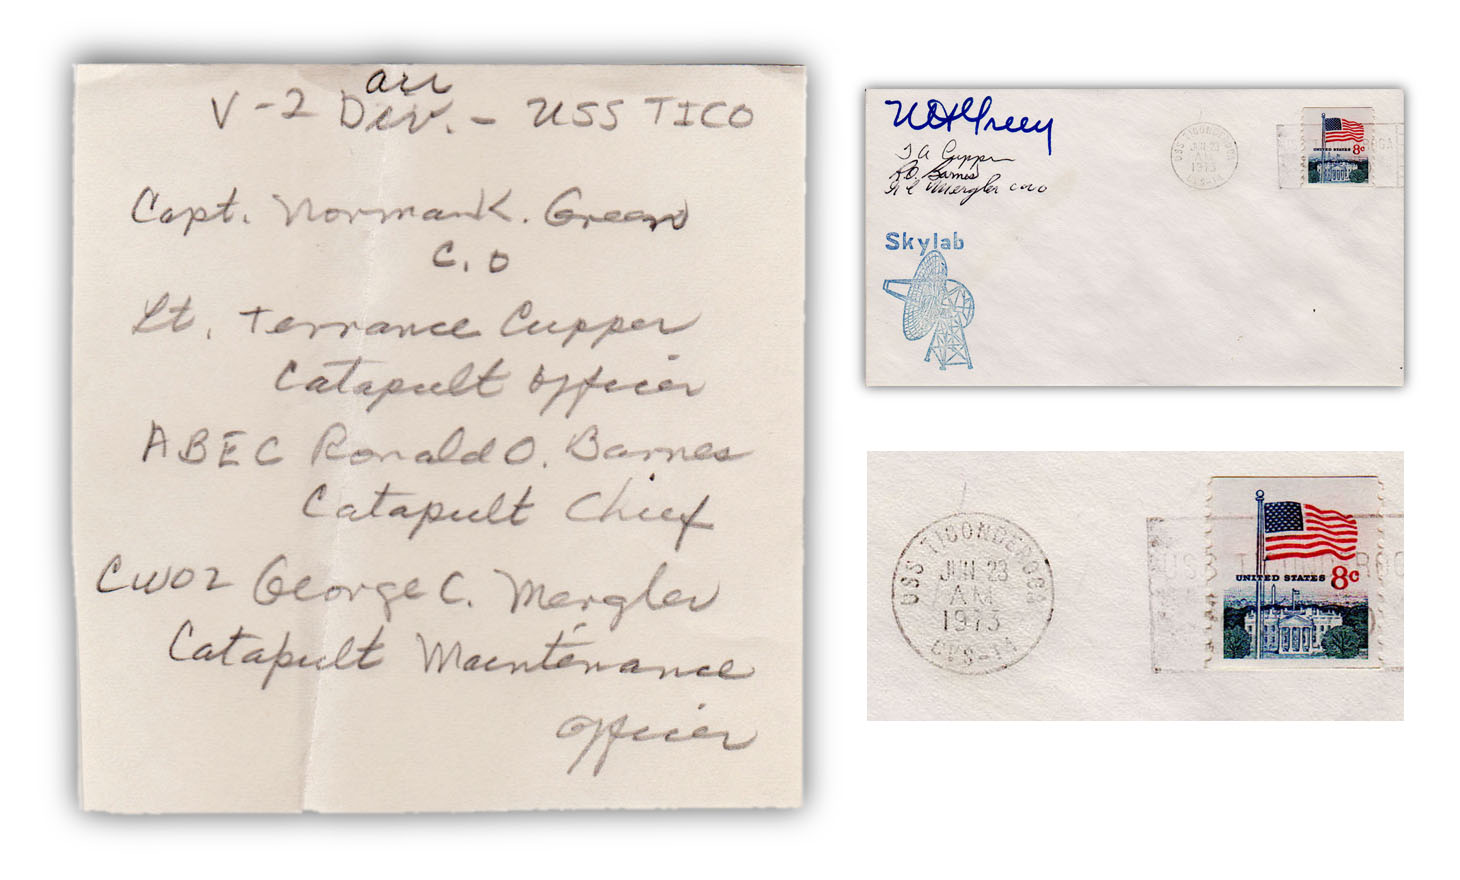 all
V-2 Div. - USS TICO
Capt. Norman K. Green
C.O
Lt. Terrance Cupper
Catapult Officer
ABEC Ronald O. Barnes
Catapult Chief
CWO2 George C. Mergler
Catapult Maintenance
Officer
NK Green
T A Cupper
R.O. Barnes
G C Mergler CWO
Skylab
USS TICONDEROGA
JUN 23
AM
1973
CVS-14
UNITED STATES 8c
USS TICONDEROGA
JUN 23
AM
1973
CVS-14
USS TICONDEROG
UNITED STATES 8c